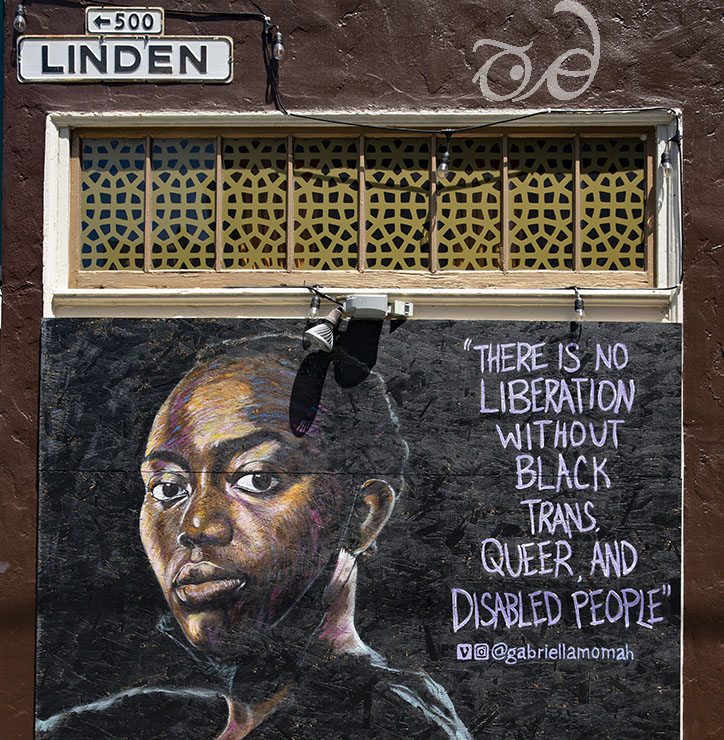 ←500
LINDEN
"THERE IS NO
LIBERATION
WITHOUT
BLACK
TRANS,
QUEER, AND
DISABLED PEOPLE"
@gabriellamomah